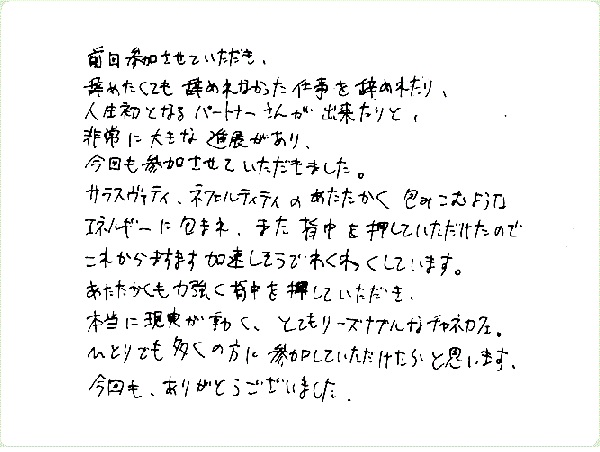 前回参加させていただき、
辞めたくても辞めれなかった仕事を辞めれたり、
人生初となるパートナーさんが出来たりと、
非常に大きな進展があり、
今回も参加させていただきました。
サラスヴァティ、ネフェルティティのあたたかく包みこむような
エネルギーに包まれ、また背中を押していただけたので
これからますます加速しそうでわくわくしています。
あたたかくも力強く背中を押していただき、
本当に現実が動く、とてもリーズナブルなチャネカフェ。
ひとりでも多くの方に参加していただけたらと思います。
今回も、ありがとうございました。